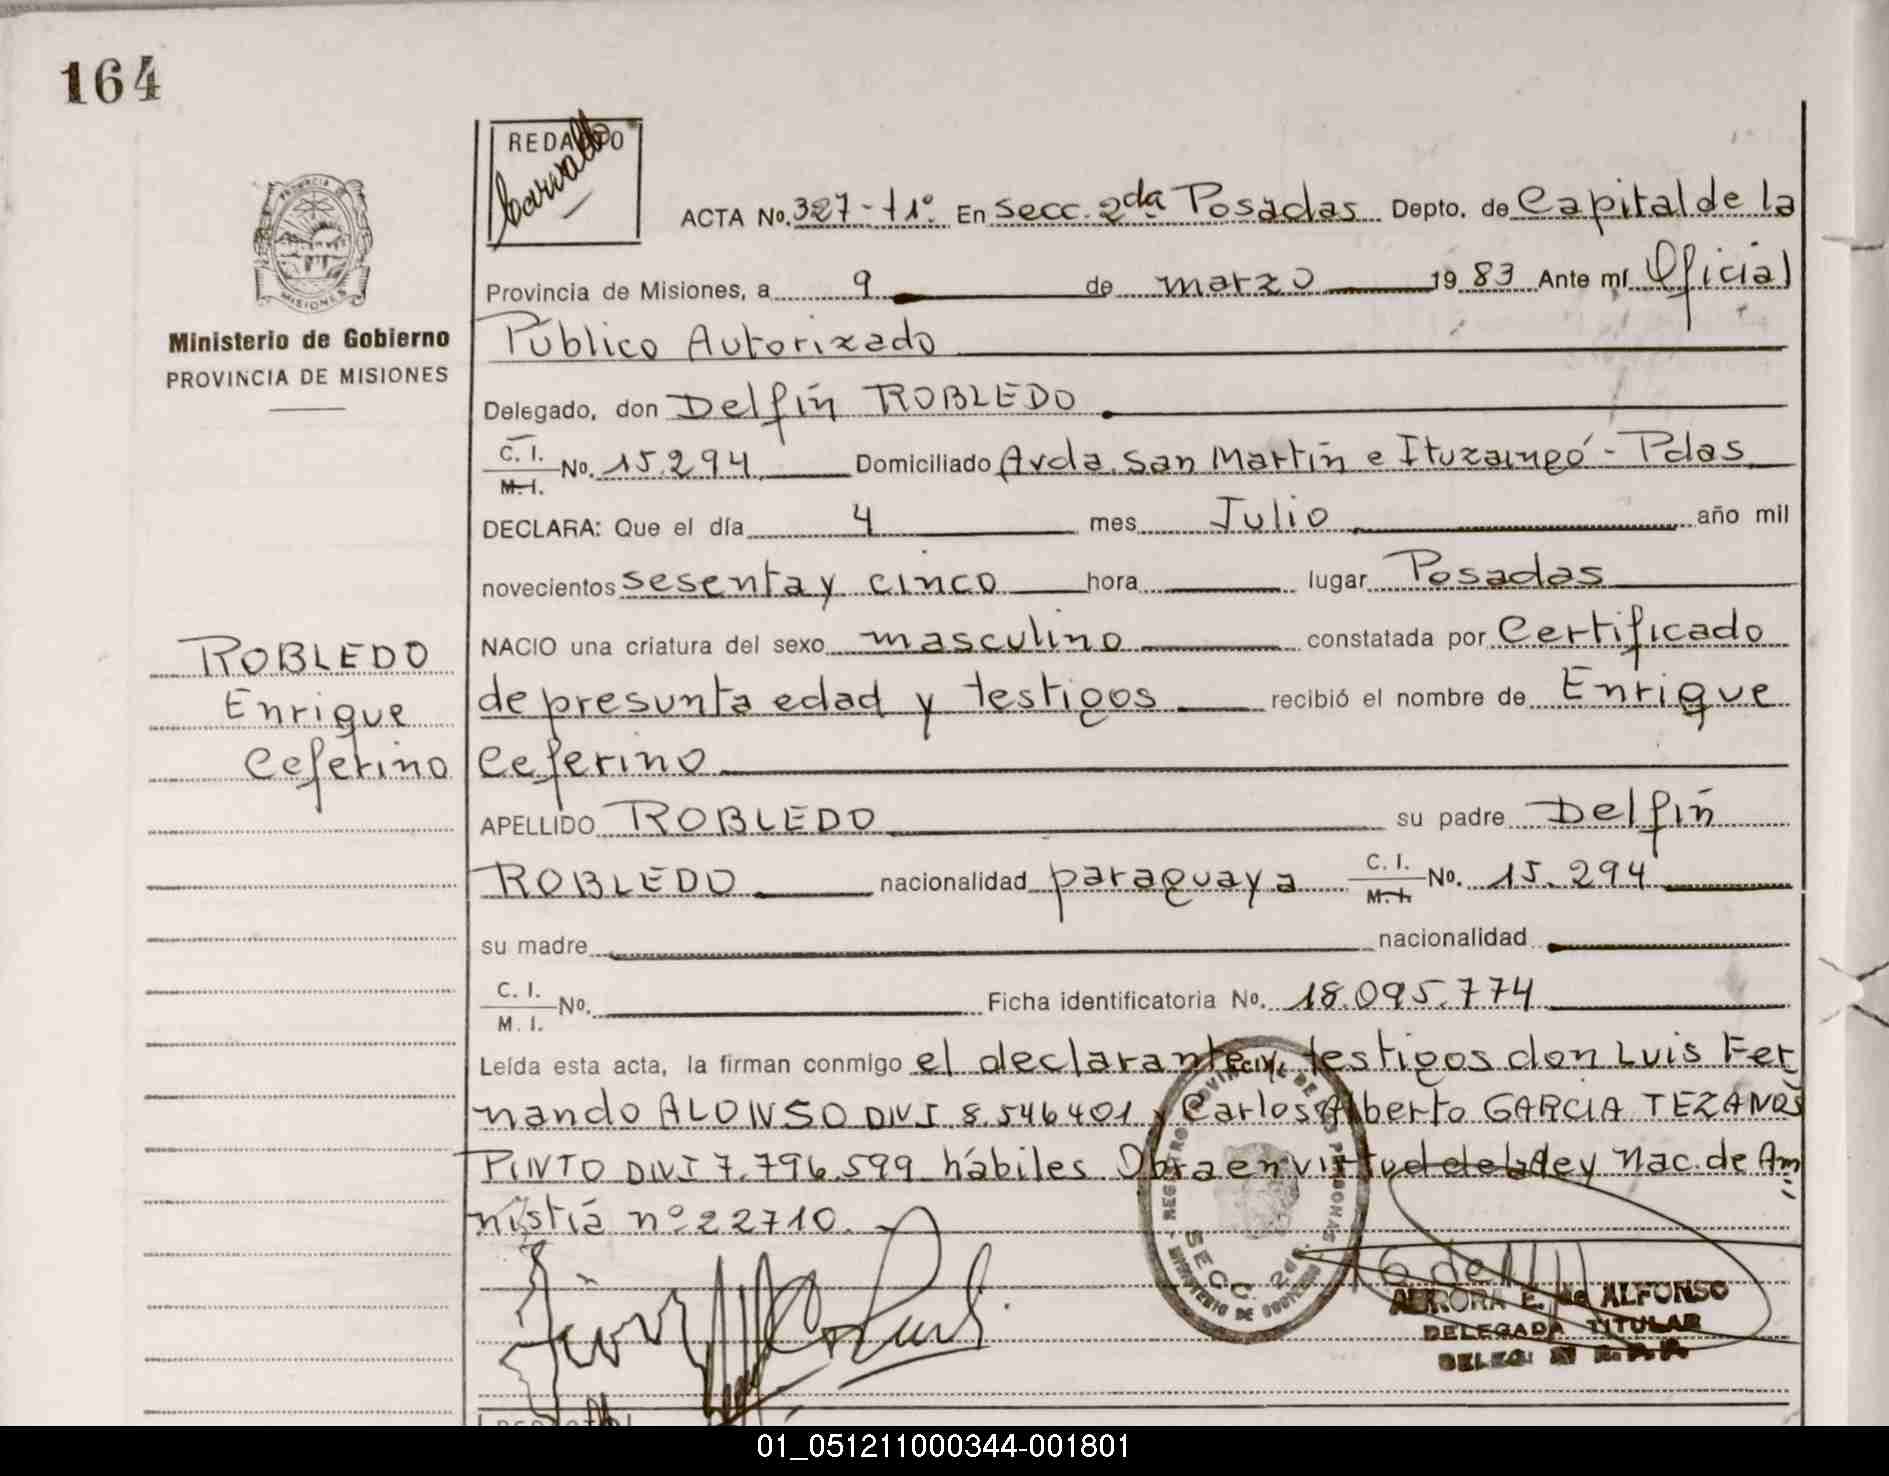 164
REDACTO
Carvallo
ACTA No. 327-t1º. En Secc. 2da Posadas Depto. de Capital de la
Provincia de Misiones, a 9 de marzo 1983 Ante mí Oficial
Ministerio de Gobierno
PROVINCIA DE MISIONES
Público Autorizado
Delegado, don Delfín ROBLEDO
C. I.
M. I. No. 15.294 Domiciliado Avda. San Martín e Ituzaingó - Pdas
DECLARA: Que el día 4 mes Julio año mil
novecientos sesenta y cinco hora lugar Posadas
NACIO una criatura del sexo masculino constatada por Certificado
ROBLEDO
Enrique
Ceferino
de presunta edad y testigos recibió el nombre de Enrique
Ceferino
APELLIDO ROBLEDO su padre Delfín
ROBLEDO nacionalidad paraguaya C. I.
M. I. No. 15.294
su madre nacionalidad
C. I.
M. I. No. Ficha identificatoria No. 18.095.774
Leída esta acta, la firman conmigo el declarante y testigos don Luis Fer
nando ALONSO DNI 8.546401 y Carlos Alberto GARCIA TEZANOS
PINTO DNI 7.796.599 hábiles Obra en virtud de la Ley Nac. de Am
nistía nº 22710.
SECC. 2da.
MINISTERIO DE GOBIERNO
AURORA E. de ALFONSO
DELEGADA TITULAR
01_051211000344-001801